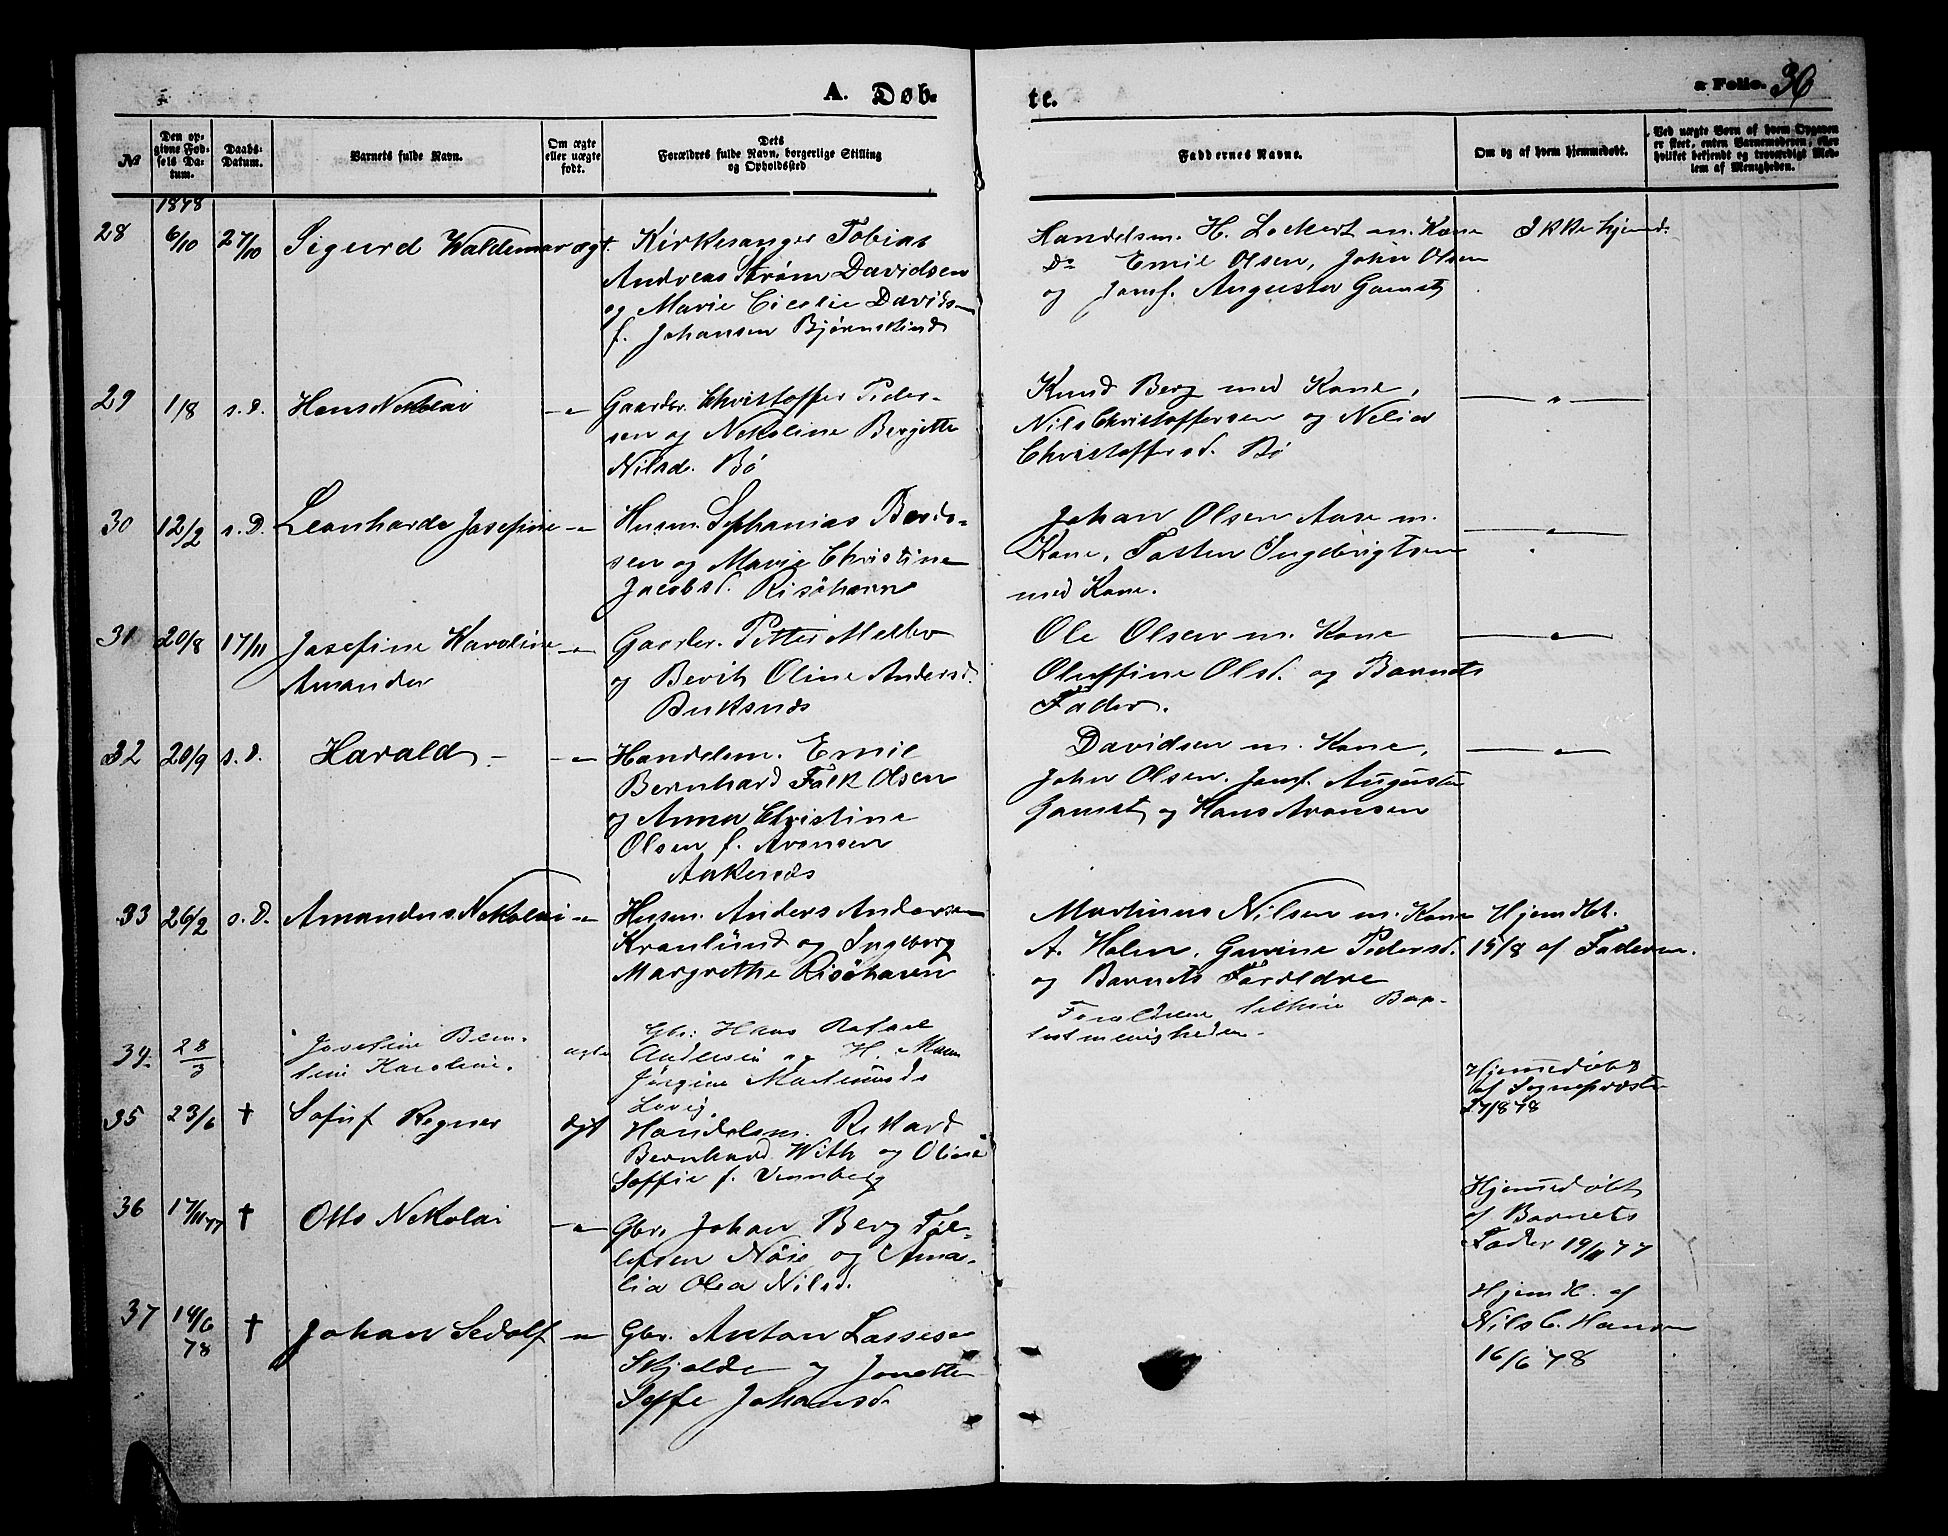 A. Døb-
te.
a Folio. 36
№
Den op-
givne Fød-
sels Da-
tum.
Daabs-
Datum.
Barnets fulde Navn.
Om ægte
eller uægte
født.
Dets
Forældres fulde Navn, borgerlige Stilling
og Opholdssted
Faddernes Navne.
Om og af hvem hjemmedøbt.
Ved uægte Børn af hvem Opgaven
er skeet, enten Barnemoderen, eller
hvilket bekjendt og troværdigt Med-
lem af Menigheden.
1878
28 6/10 27/10 Sigurd Waldemar ægt. Kirkesanger Tobias
Andreas Strøm Davidsen
og Marie Cicelie Davids-
f. Johansen Bjørnskinds
Handelsm. H. Lockert m. Kone
Do Emil Olsen, John Olsen
og Jomf. Augusta Gamst
Ikke hjemd.
29 1/8 s.d. Hans Nekolai - " - Gaardbr. Christoffer Peder-
sen og Nekoline Bergitte
Nilsd. Bø
Knud Berg med Kone,
Nils Christoffersen og Nelia
Christoffersd. Bø
— " —
30 12/2 s.D. Leonharda Josefine - " - Husm. Sephanias Berds-
sen og Marie Christine
Jacobsd. Risøhavn
Johan Olsen Aase m.
Kone, Tosten Ingebrigtsen
med Kone.
— " —
31 20/8 17/11 Josefine Karoline - " -
Amanda
Gaardbr. Petter Melbo
og Berith Oline Andersd.
Buksnæs
Ole Olsen m. Kone
Oluffine Olsd. og Barnets
Fader.
— " —
32 20/9 s.d. Harald - - " - Handelsm. Emil
Bernhard Falk Olsen
og Anna Christine
Olsen f. Aronsen
Aakenæs
Davidsen m. Kone,
John Olsen. Jomf. Augusta
Gamst og Hans Aronsen
— " —
33 26/2 s.D. Amandus Nekolai - " - Husm. Anders Andersen
Kranlund og Ingeborg
Margrethe Risøhavn
Martinus Nilsen m. Kone
A. Holen, Gurine Pedersd.
og Barnets Forældre
Forældrene tilhøre Bap-
tistmenigheden.
Hjemdbt.
15/8 af Faderen.
34. 28/3 Josefine Blen-
tine Karoline.
ægte Gbr. Hans Rafael
Andersen og H. Maren
Jørgine Martinusd.
Lovig.
Hjemmedøbt
af Sognepræsten
27/8 78
35 23/6 † Sofus Regner ægt Handelsm. Rikard
Bernhard With og Oline
Soffie f. Vennberg
36 17/11 77 † Otto Nekolai - " - Gbr. Johan Berg Tøl-
lefsen Nøss og Ama-
lia Olea Nilsd.
Hjemmedøbt
af Barnets
Fader 19/11 77
37 14/6 78 † Johan Sedolf - " - Gbr. Anton Lassesen
Skjolde og Jonette
Seffe Johansd.
Hjemd. af
Nils C. Hansen
16/6 78